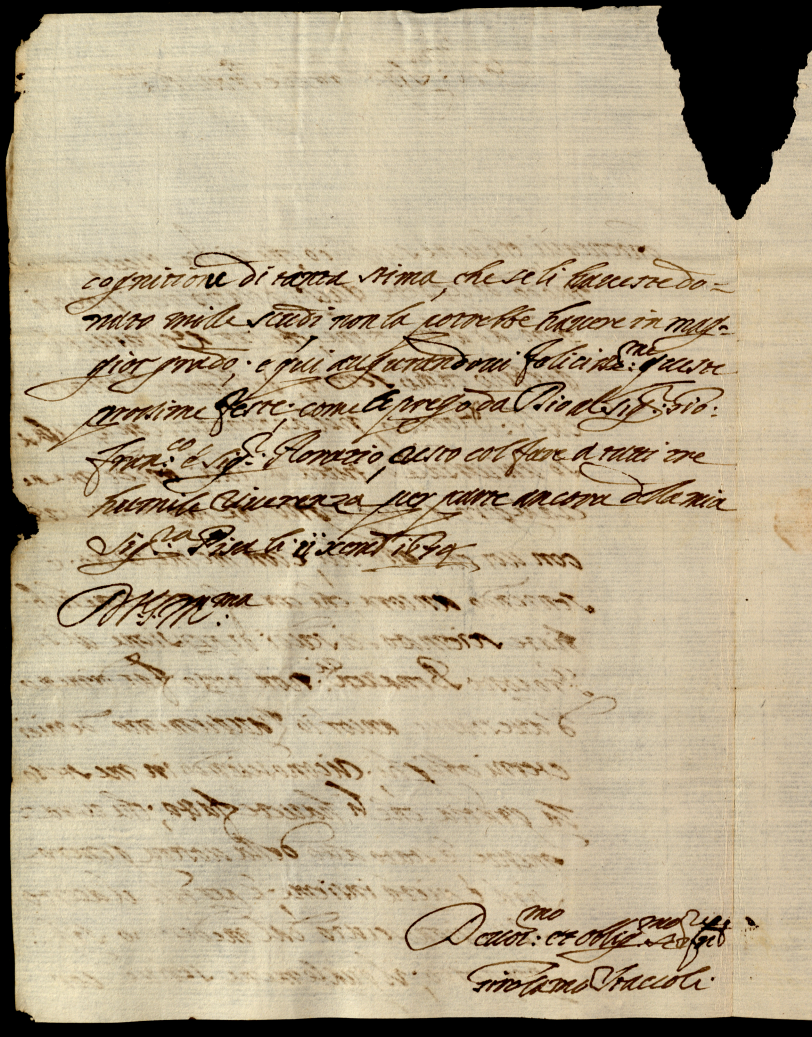 cognitione di tanta stima, che se li havesse do=
nato mille scudi non la potrebbe havere in mag=
gior grado; e qui augurandovi feliciss:me queste
prossime feste, come le prego da Dio al Sig:r Gio:
Fran:co e Sig:r Horatio, resto col fare a tutti tre
humile riverenza per parte ancora della mia
Sig:ra Pisa li ij xmbre
Di V.S. M:ma
Devot:mo et oblig:mo
Girolamo